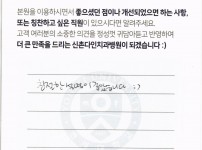 본원을 이용하시면서 좋으셨던 점이나 개선되었으면 하는 사항,
또는 칭찬하고 싶은 직원이 있으시다면 알려주세요.
고객 여러분의 소중한 의견을 정성껏 귀담아듣고 반영하여
더 큰 만족을 드리는 신촌다인치과병원이 되겠습니다 :)
친절한 병원이었습니다 :)